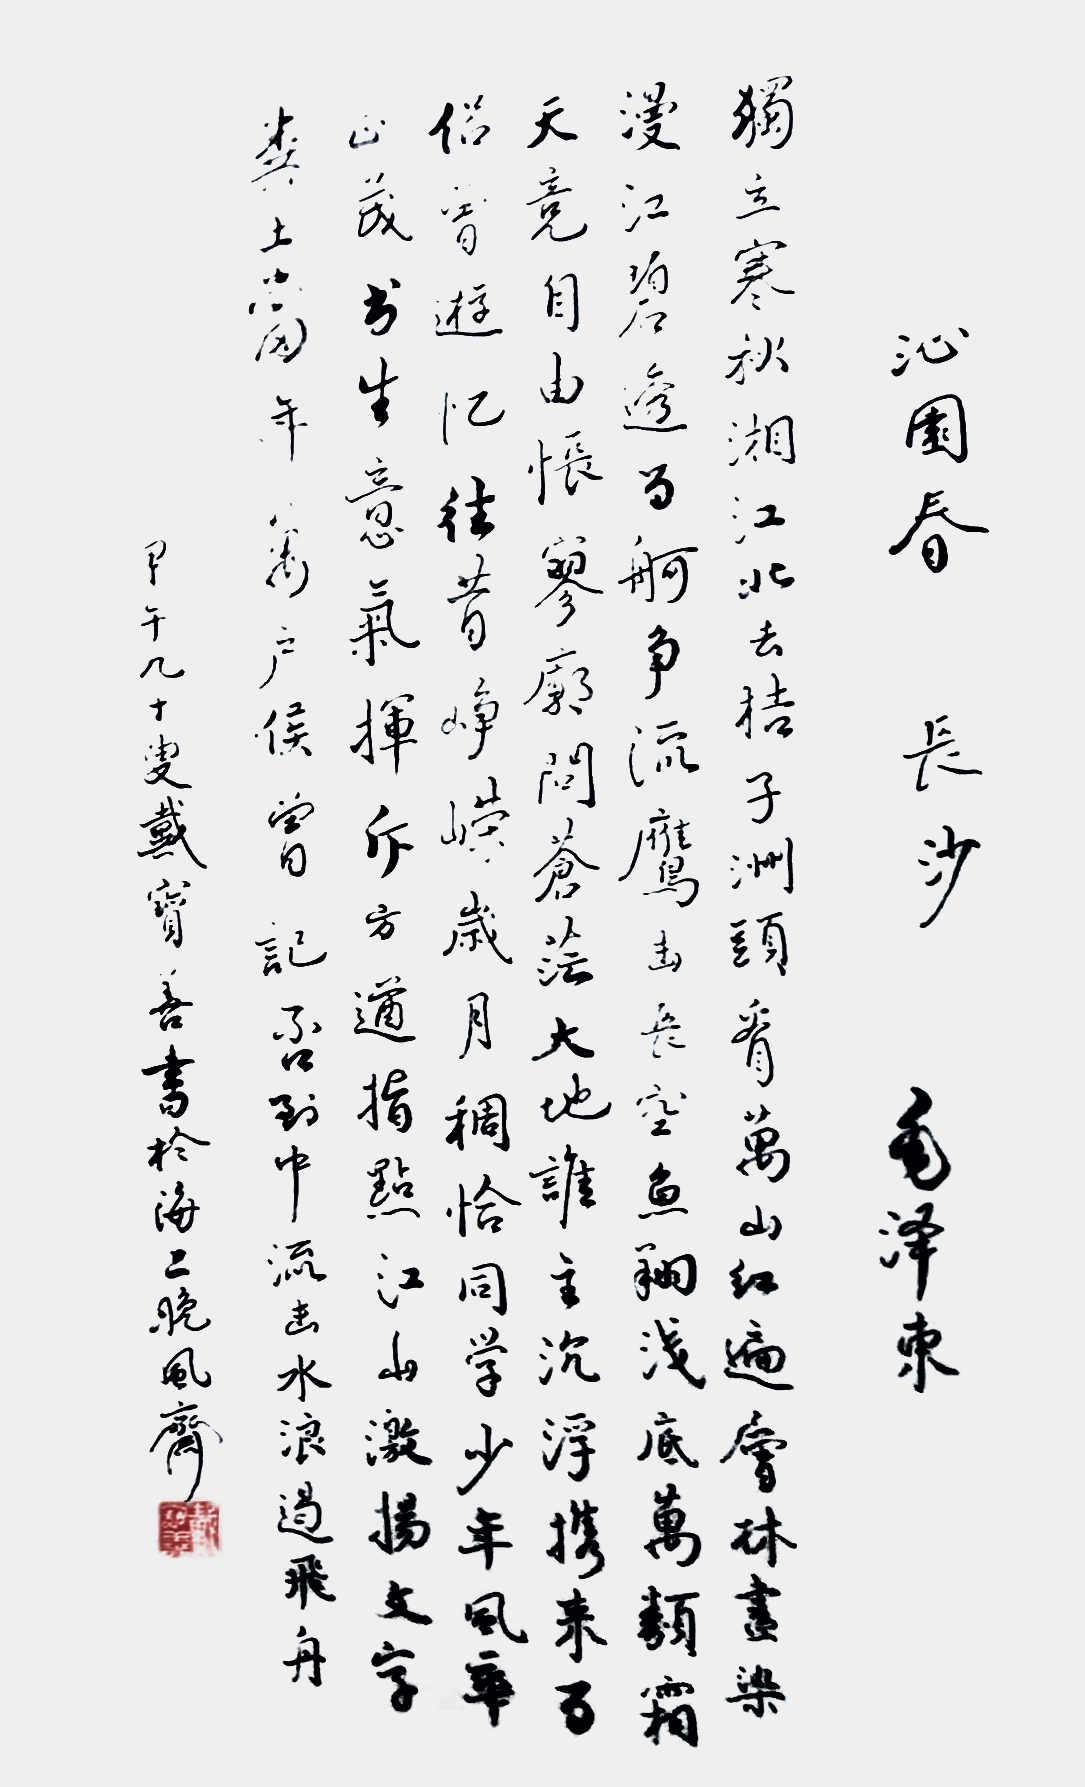 沁園春 長沙 毛泽東
獨立寒秋湘江北去桔子洲頭看萬山红遍層林盡染
漫江碧透百舸争流鷹击長空魚翔淺底萬類霜
天竞自由悵寥廓問蒼茫大地誰主沉浮携来百
侣曾遊忆往昔峥嵘歲月稠恰同学少年風華
正茂书生意氣揮斥方遒指點江山激揚文字
粪土當年萬户侯曾記否到中流击水浪遏飛舟
甲午九十叟戴寶善書於海上晚風齋